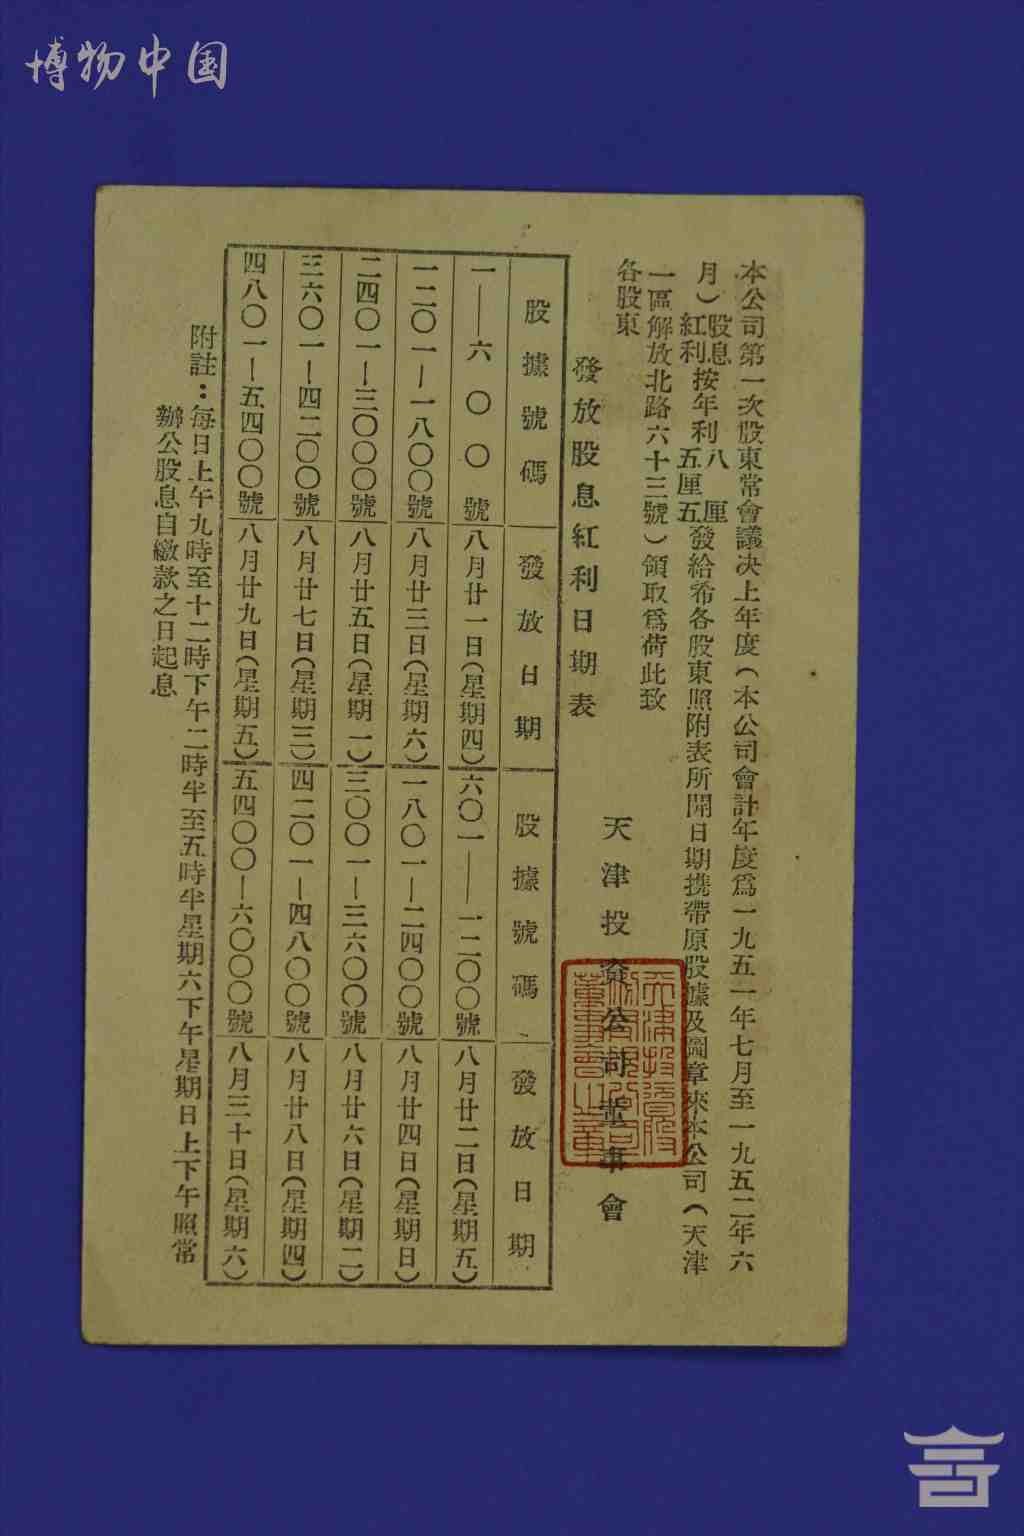 博物中国
本公司第一次股東常會議决上年度（本公司會計年度爲一九五一年七月至一九五二年六
月）股息紅利按年利八厘五厘五發給希各股東照附表所開日期携帶原股據及圖章來本公司（天津
一區解放北路六十三號）領取爲荷此致
各股東
天津投資公司董事會
發放股息紅利日期表
股據號碼 發放日期 股據號碼 發放日期
一——六〇〇號 八月廿一日（星期四） 六〇一——一二〇〇號 八月廿二日（星期五）
一二〇一—一八〇〇號 八月廿三日（星期六） 一八〇一—二四〇〇號 八月廿四日（星期日）
二四〇一—三〇〇〇號 八月廿五日（星期一） 三〇〇一—三六〇〇號 八月廿六日（星期二）
三六〇一—四二〇〇號 八月廿七日（星期三） 四二〇一—四八〇〇號 八月廿八日（星期四）
四八〇一—五四〇〇號 八月廿九日（星期五） 五四〇〇—六〇〇〇號 八月三十日（星期六）
附註：每日上午九時至十二時下午二時半至五時半星期六下午星期日上下午照常
辦公股息自繳款之日起息